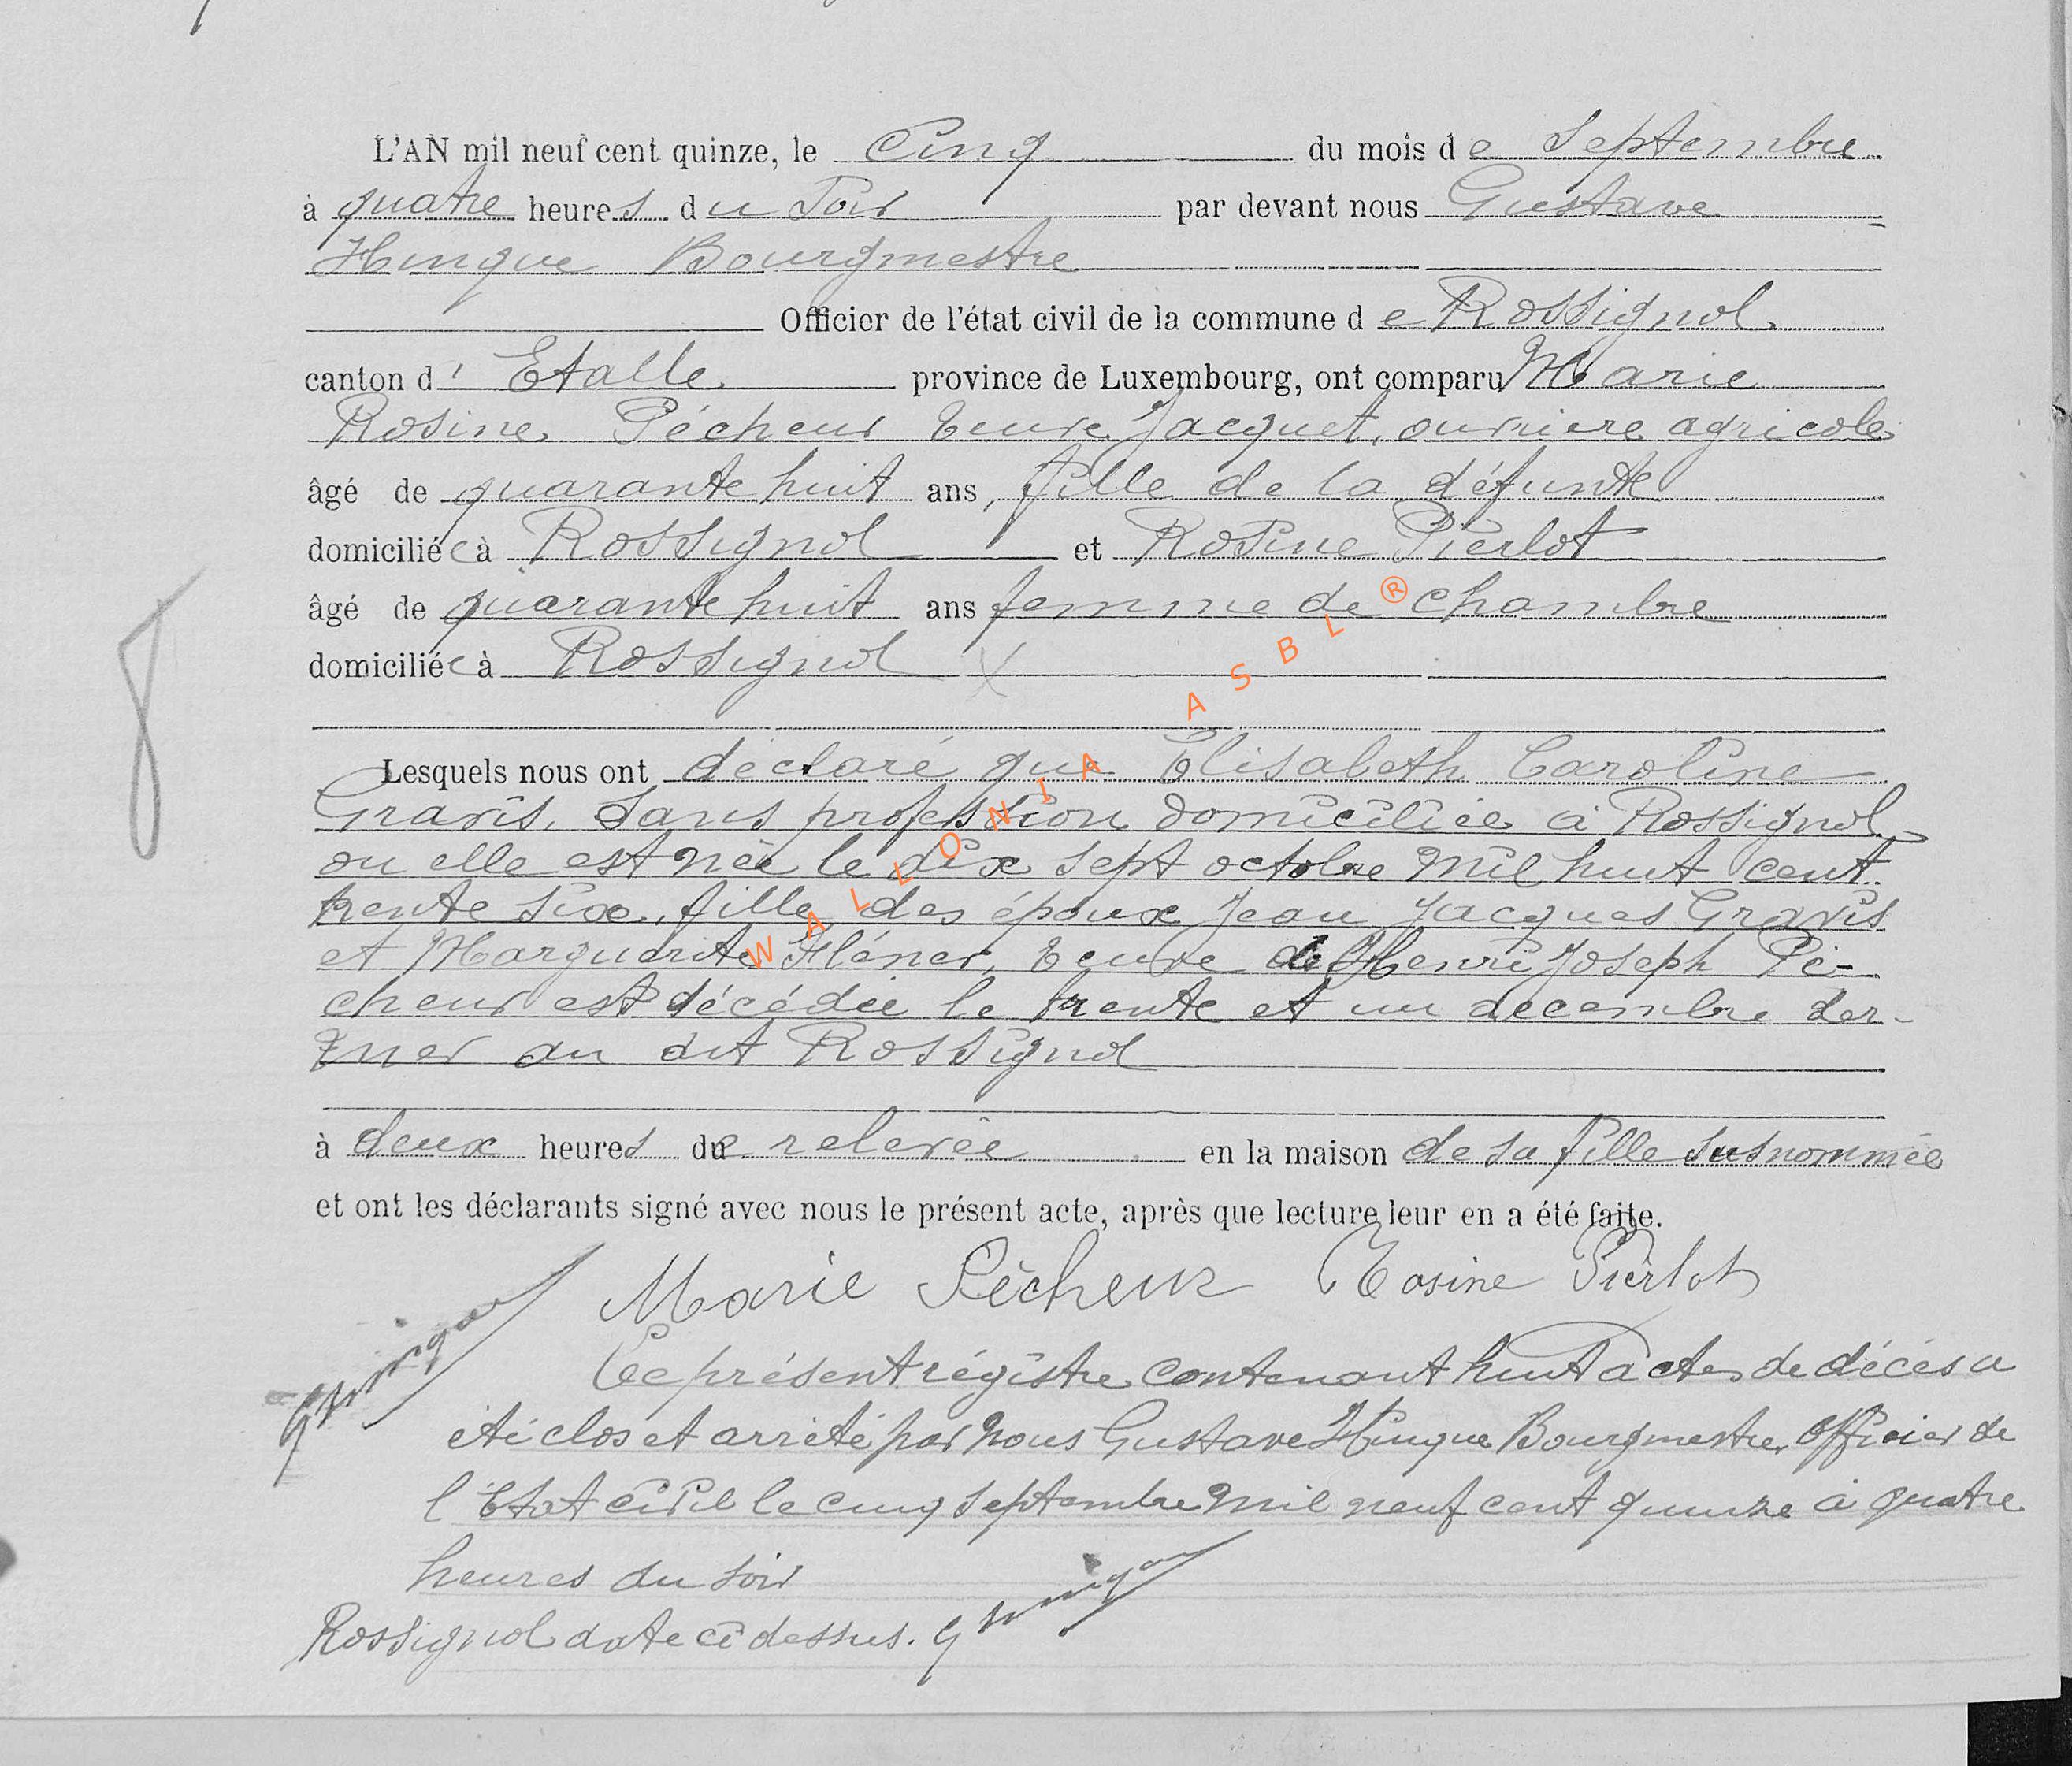 L'AN mil neuf cent quinze, le Cinq du mois de Septembre
à quatre heures du Soir par devant nous Gustave
Hinque Bourgmestre
Officier de l'état civil de la commune de Rossignol
canton d' Etalle province de Luxembourg, ont comparu Marie
Rosine Pécheur Veuve Jacquet, ouvriere agricole
âgé de quarante huit ans, fille de la défunte
domiciliée à Rossignol et Rosine Pierlot
âgé de quarante huit ans femme de chambre
domiciliée à Rossignol
Lesquels nous ont déclaré que Elisabeth Caroline
Gravis, sans profession domiciliée à Rossignol
ou elle est née le dix sept octobre mil huit cent
trente six, fille des époux Jean Jacques Gravis
et Marguerite Veuve de Henri Joseph Pé-
cheur est décédée le trente et un décembre der-
nier au dit Rossignol
à deux heures de relevée en la maison de sa fille susnommée
et ont les déclarants signé avec nous le présent acte, après que lecture leur en a été faite.
Marie Pécheur Rosine Pierlot
GHinque
Le présent régistre contenant huit actes de décès a
été clos et arrêté par nous Gustave Hinque Bourgmestre Officier de
l'Etat civil le cinq septembre mil neuf cent quinze à quatre
heures du soir
Rossignol date ci dessus. GHinque
8
WALLONIA ASBL ®